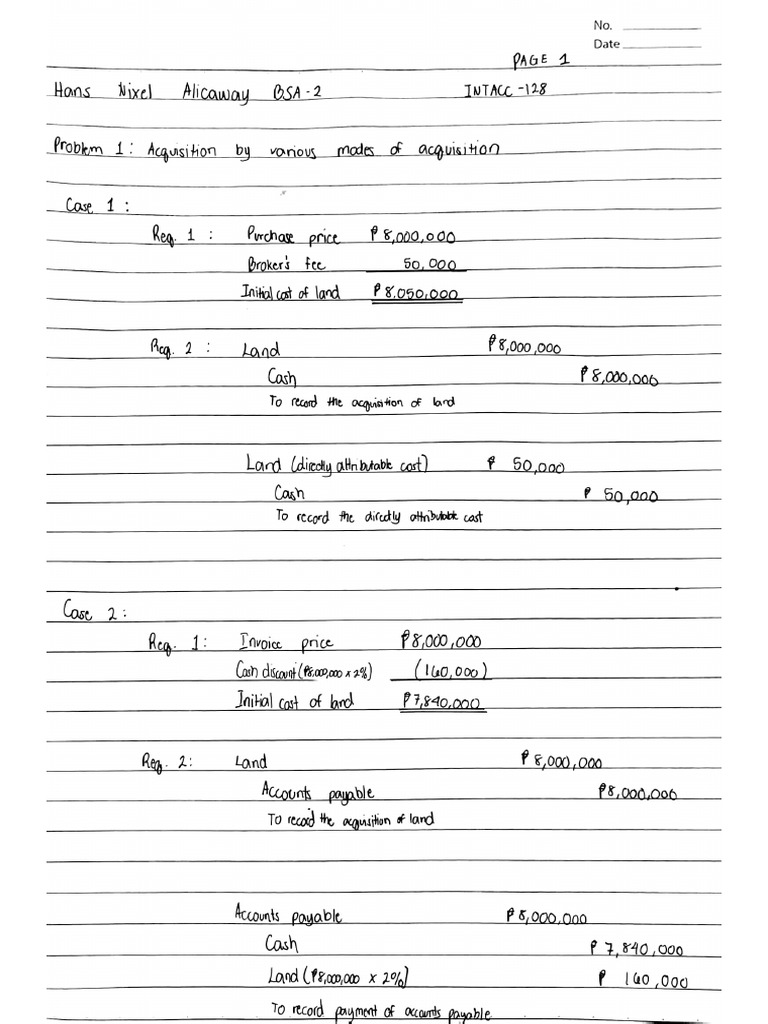 No.
Date
PAGE 1
Hans Nixel Alicaway BSA-2 INTACC-128
Problem 1: Acquisition by various modes of acquisition
Case 1:
Req. 1: Purchase price ₱8,000,000
Broker's fee 50,000
Initial cost of land ₱8.050,000
Req. 2: Land ₱8,000,000
Cash ₱8,000,000
To record the acquisition of land
Land (directly attributable cost) ₱ 50,000
Cash ₱ 50,000
To record the directly attributable cost
Case 2:
Req. 1: Invoice price ₱8,000,000
Cash discount (₱8,000,000 x 2%) (160,000)
Initial cost of land ₱7,840,000
Req. 2: Land ₱8,000,000
Accounts payable ₱8,000,000
To record the acquisition of land
Accounts payable ₱8,000,000
Cash ₱7,840,000
Land (₱8,000,000 x 2%) ₱ 160,000
To record payment of accounts payable